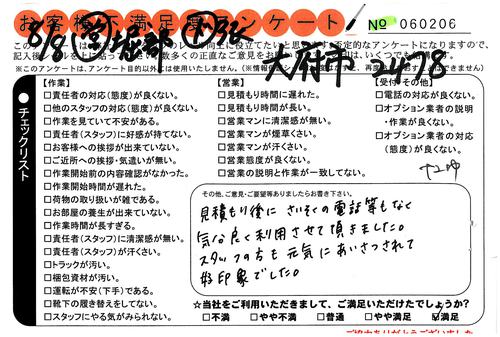 お客様不満足度アンケート!
No 060206
8/8 営 堀部
大府市 2478
この
記入後
※このアンケートは、アンケート目的以外には使用いたしません。
チェックリスト
【作業】
□責任者の対応(態度)が良くない。
□他のスタッフの対応(態度)が良くない。
□作業を見ていて不安がある。
□責任者(スタッフ)に好感が持てない。
□お客様への挨拶が出来ていない。
□ご近所への挨拶・気遣いが無い。
□作業開始前の内容確認がなかった。
□作業開始時間が遅れた。
□荷物の取り扱いが雑である。
□お部屋の養生が出来ていない。
□作業時間が長すぎる。
□責任者(スタッフ)に清潔感が無い。
□責任者(スタッフ)が汗くさい。
□トラックが汚い。
□梱包資材が汚い。
□運転が不安(下手)である。
□靴下の履き替えをしてない。
□スタッフにやる気がみられない。
【営業】
□見積もり時間に遅れた。
□見積もり時間が長い。
□営業マンに清潔感が無い。
□営業マンが煙草くさい。
□営業マンが汗くさい。
□営業態度が良くない。
□営業の説明と作業が一致してない。
【受付・その他】
□電話の対応が良くない。
□オプション業者の説明
・作業が良くない。
□オプション業者の対応
(態度)が良くない。
その他、ご意見・ご要望等ありましたらお書き下さい。
見積もり後に さいそくの電話等もなく
気分良く利用させて頂きました。
スタッフの方も元気にあいさつされて
好印象でした。
☆当社をご利用いただきまして、ご満足いただけたでしょうか?
□不満 □やや不満 □普通 □やや満足 ☑満足
ご協力ありがとうございました